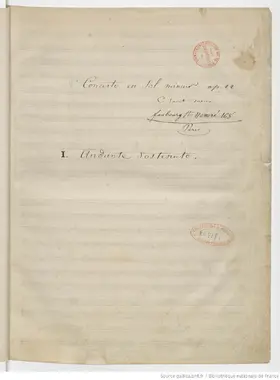 Concerto en Sol mineur op. 22
C. Saint-Saëns
faubourg St Honoré 168
Paris
I. Andante sostenuto.
Source gallica.bnf.fr / Bibliothèque nationale de France